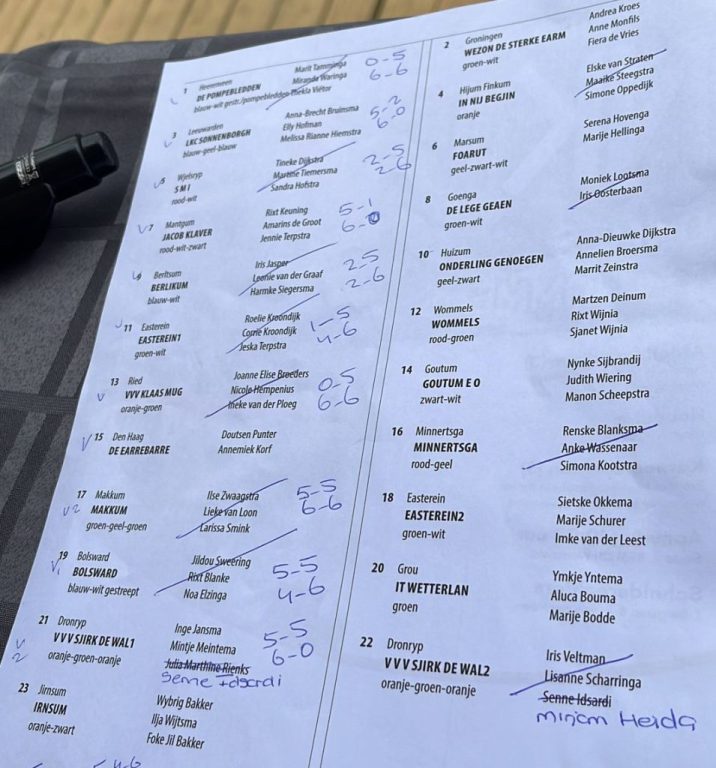 1 Heerenveen
DE POMPEBLEDDEN
blauw-wit gestr./pompebledden
Marit Tamminga
Miranda Waringa
Thekla Viëtor
0-5
6-6
3 Leeuwarden
LKC SONNENBORGH
blauw-geel-blauw
Anna-Brecht Bruinsma
Elly Hofman
Melissa Rianne Hiemstra
5-2
6-0
5 Wjelsryp
S M I
rood-wit
Tineke Dijkstra
Martine Tiemersma
Sandra Hofstra
2-5
2-6
7 Mantgum
JACOB KLAVER
rood-wit-zwart
Rixt Keuning
Amarins de Groot
Jennie Terpstra
5-1
6-0
9 Berltsum
BERLIKUM
blauw-wit
Iris Jasper
Leonie van der Graaf
Harmke Siegersma
2-5
2-6
11 Easterein
EASTEREIN1
groen-wit
Roelie Kroondijk
Corrie Kroondijk
Jeska Terpstra
1-5
4-6
13 Ried
VVV KLAAS MUG
oranje-groen
Joanne Elise Broeders
Nicole Hempenius
Ineke van der Ploeg
0-5
6-6
15 Den Haag
DE EARREBARRE
Doutsen Punter
Annemiek Korf
17 Makkum
MAKKUM
groen-geel-groen
2
Ilse Zwaagstra
Lieke van Loon
Larissa Smink
5-5
6-6
19 Bolsward
BOLSWARD
blauw-wit gestreept
1
Jildou Sweering
Rixt Blanke
Noa Elzinga
5-5
4-6
21 Dronryp
V V V SJIRK DE WAL1
oranje-groen-oranje
2
Inge Jansma
Mintje Meintema
Julia Marthine Rienks
Senne Idsardi
5-5
6-0
23 Jirnsum
IRNSUM
oranje-zwart
Wybrig Bakker
Ilja Wijtsma
Foke Jil Bakker
4-6
2 Groningen
WEZON DE STERKE EARM
groen-wit
Andrea Kroes
Anne Monfils
Fiera de Vries
4 Hijum Finkum
IN NIJ BEGJIN
oranje
Elske van Straten
Maaike Steegstra
Simone Oppedijk
6 Marsum
FOARUT
geel-zwart-wit
Serena Hovenga
Marije Hellinga
8 Goenga
DE LEGE GEAEN
groen-wit
Moniek Lootsma
Iris Oosterbaan
10 Huizum
ONDERLING GENOEGEN
geel-zwart
Anna-Dieuwke Dijkstra
Annelien Broersma
Marrit Zeinstra
12 Wommels
WOMMELS
rood-groen
Martzen Deinum
Rixt Wijnia
Sjanet Wijnia
14 Goutum
GOUTUM E O
zwart-wit
Nynke Sijbrandij
Judith Wiering
Manon Scheepstra
16 Minnertsga
MINNERTSGA
rood-geel
Renske Blanksma
Anke Wassenaar
Simona Kootstra
18 Easterein
EASTEREIN2
groen-wit
Sietske Okkema
Marije Schurer
Imke van der Leest
20 Grou
IT WETTERLAN
groen
Ymkje Yntema
Aluca Bouma
Marije Bodde
22 Dronryp
V V V SJIRK DE WAL2
oranje-groen-oranje
Iris Veltman
Lisanne Scharringa
Senne Idsardi
Mirjam Heida